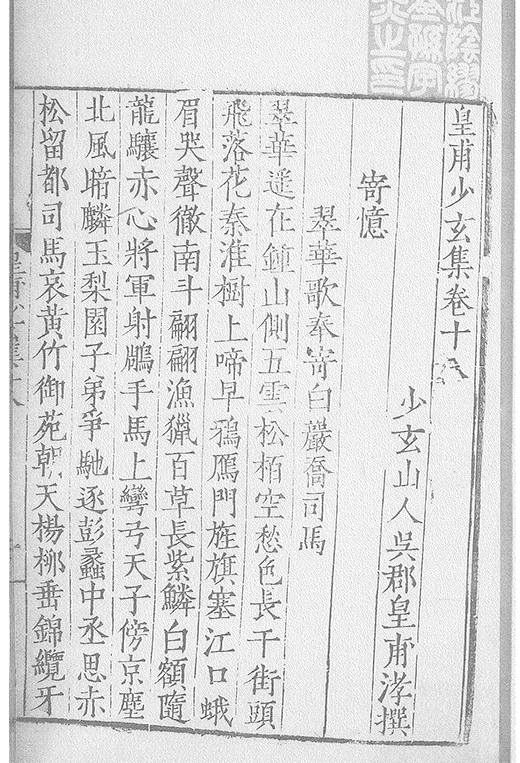 皇甫少玄集卷十八
少玄山人吳郡皇甫涍撰
寄憶
翠華歌奉寄白巖喬司馬
翠華遥在鍾山側五雲松栢空愁色長干街頭
飛落花秦淮樹上啼早鴉鴈門旌旗塞江口蛾
眉哭聲徹南斗翩翩漁獵百草長紫鱗白額隨
龍驤赤心將軍射鵰手馬上彎弓天子傍京塵
北風暗麟玉梨園子弟爭馳逐彭蠡中丞思赤
松留都司馬哀黃竹御苑朝天楊柳垂錦纜牙